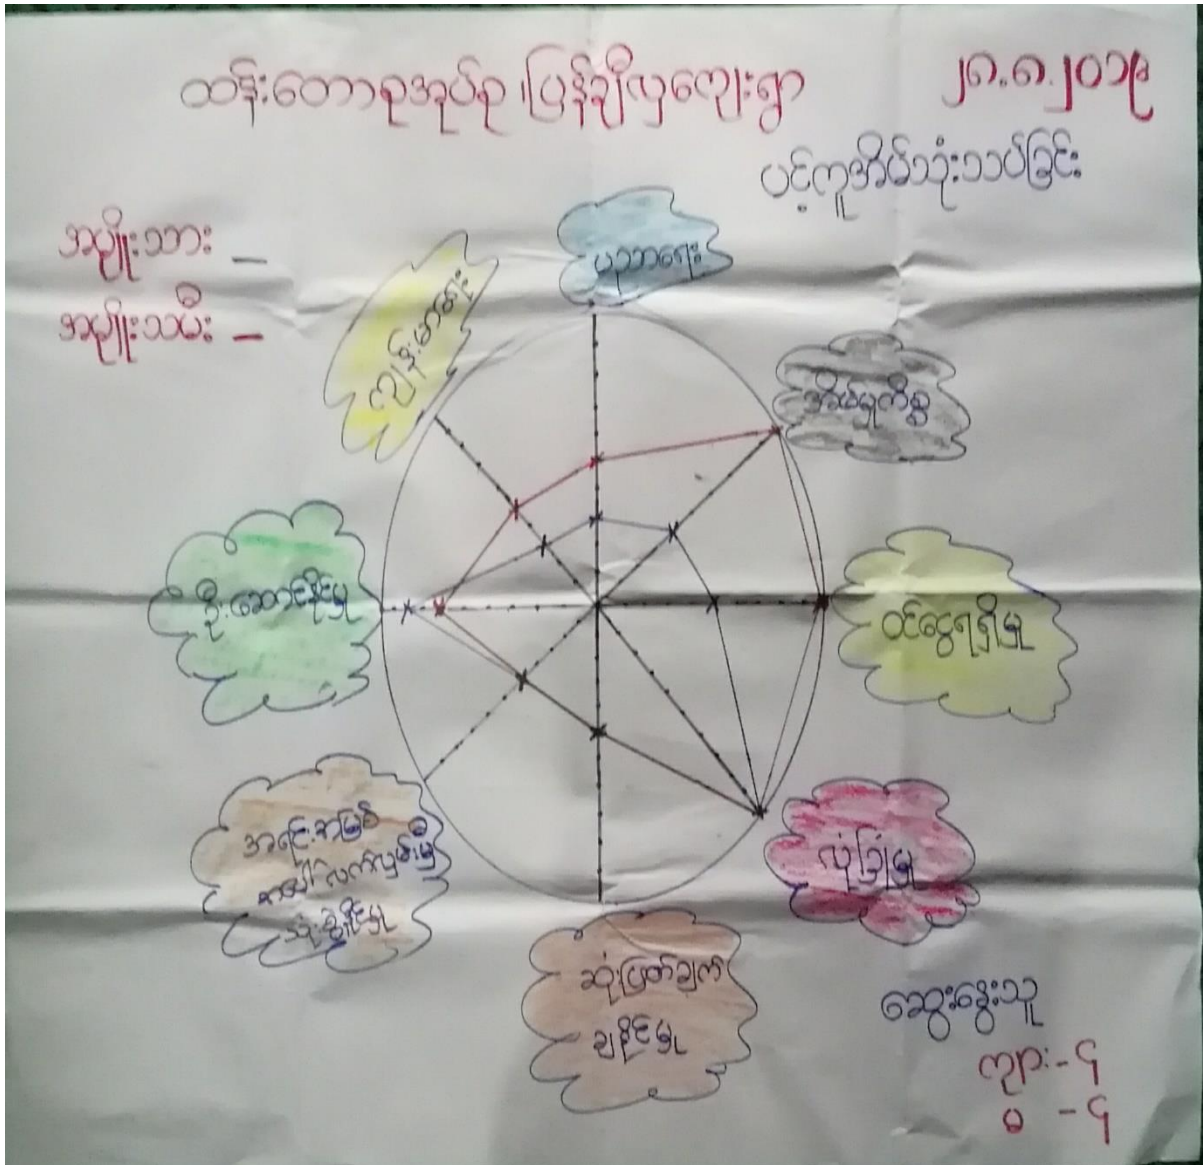 ထန်းတောစုအုပ်စု၊ပြန်ချီလှကျေးရွာ
၂၈.၈.၂၀၁၉
ပင့်ကူအိမ်သုံးသပ်ခြင်း
အမျိုးသား -
အမျိုးသမီး -
ပညာရေး
ကျန်းမာရေး
အိမ်မှုကိစ္စ
ဦးဆောင်နိုင်မှု
ဝင်ငွေရရှိမှု
အရင်းအမြစ်
အပေါ်လက်လှမ်းမှီ
သုံးစွဲနိုင်မှု
လုံခြုံမှု
ဆုံးဖြတ်ချက်
ချနိုင်မှု
ဆွေးနွေးသူ
ကျား - ၄
မ - ၄